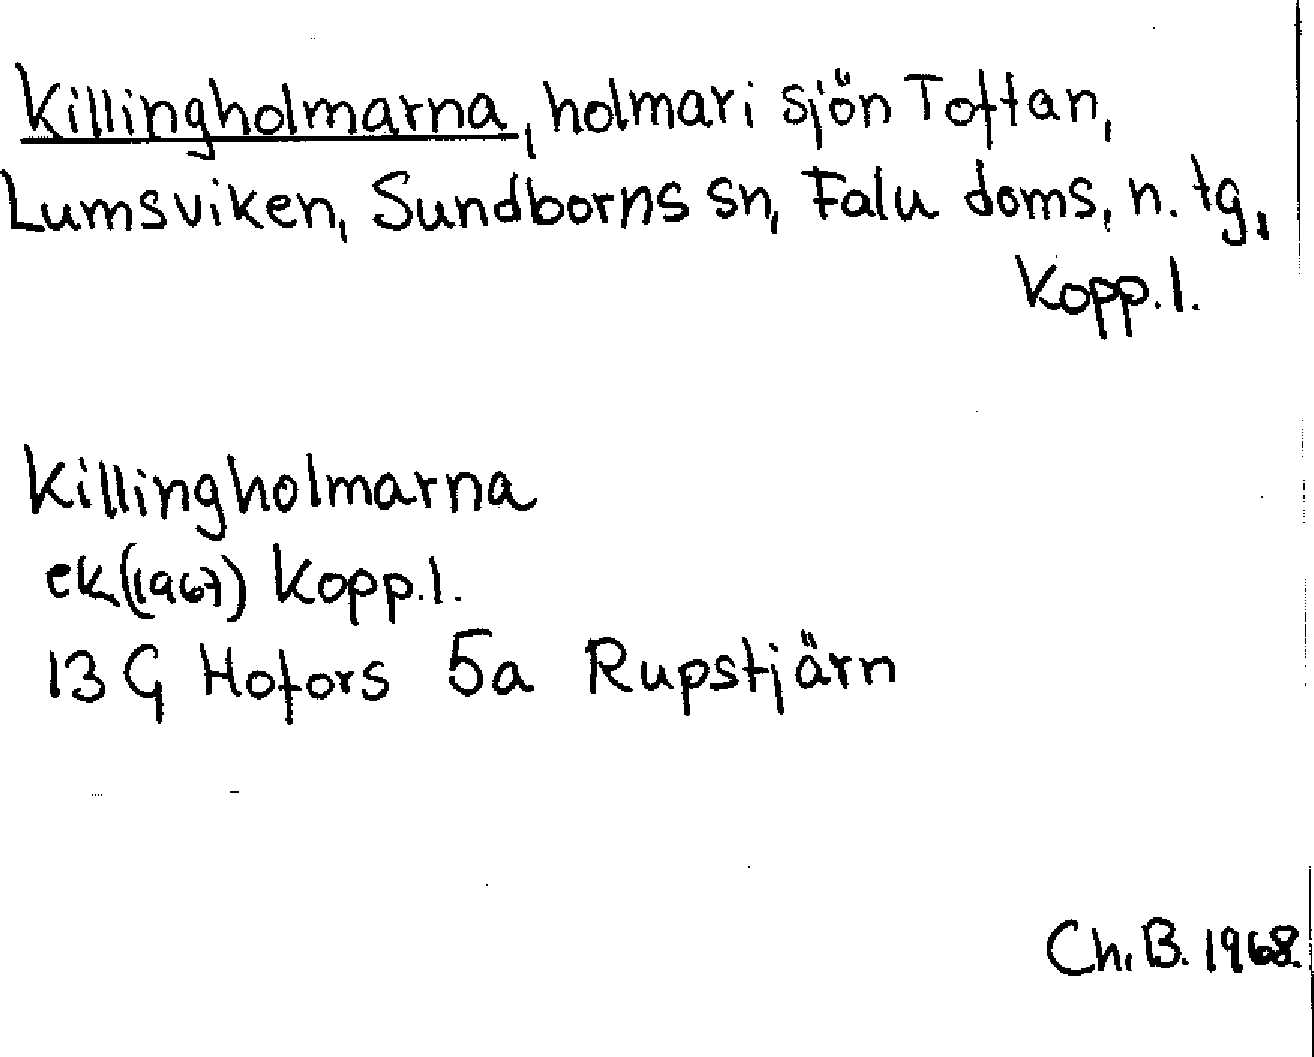 Killingholmarna, holmar i sjön Toftan,
Lumsviken, Sundborns sn, Falu doms, n. tg,
Kopp. l.
Killingholmarna
ek (1967) Kopp. l.
13 G Hofors 5a Rupstjärn
Ch. B. 1968.